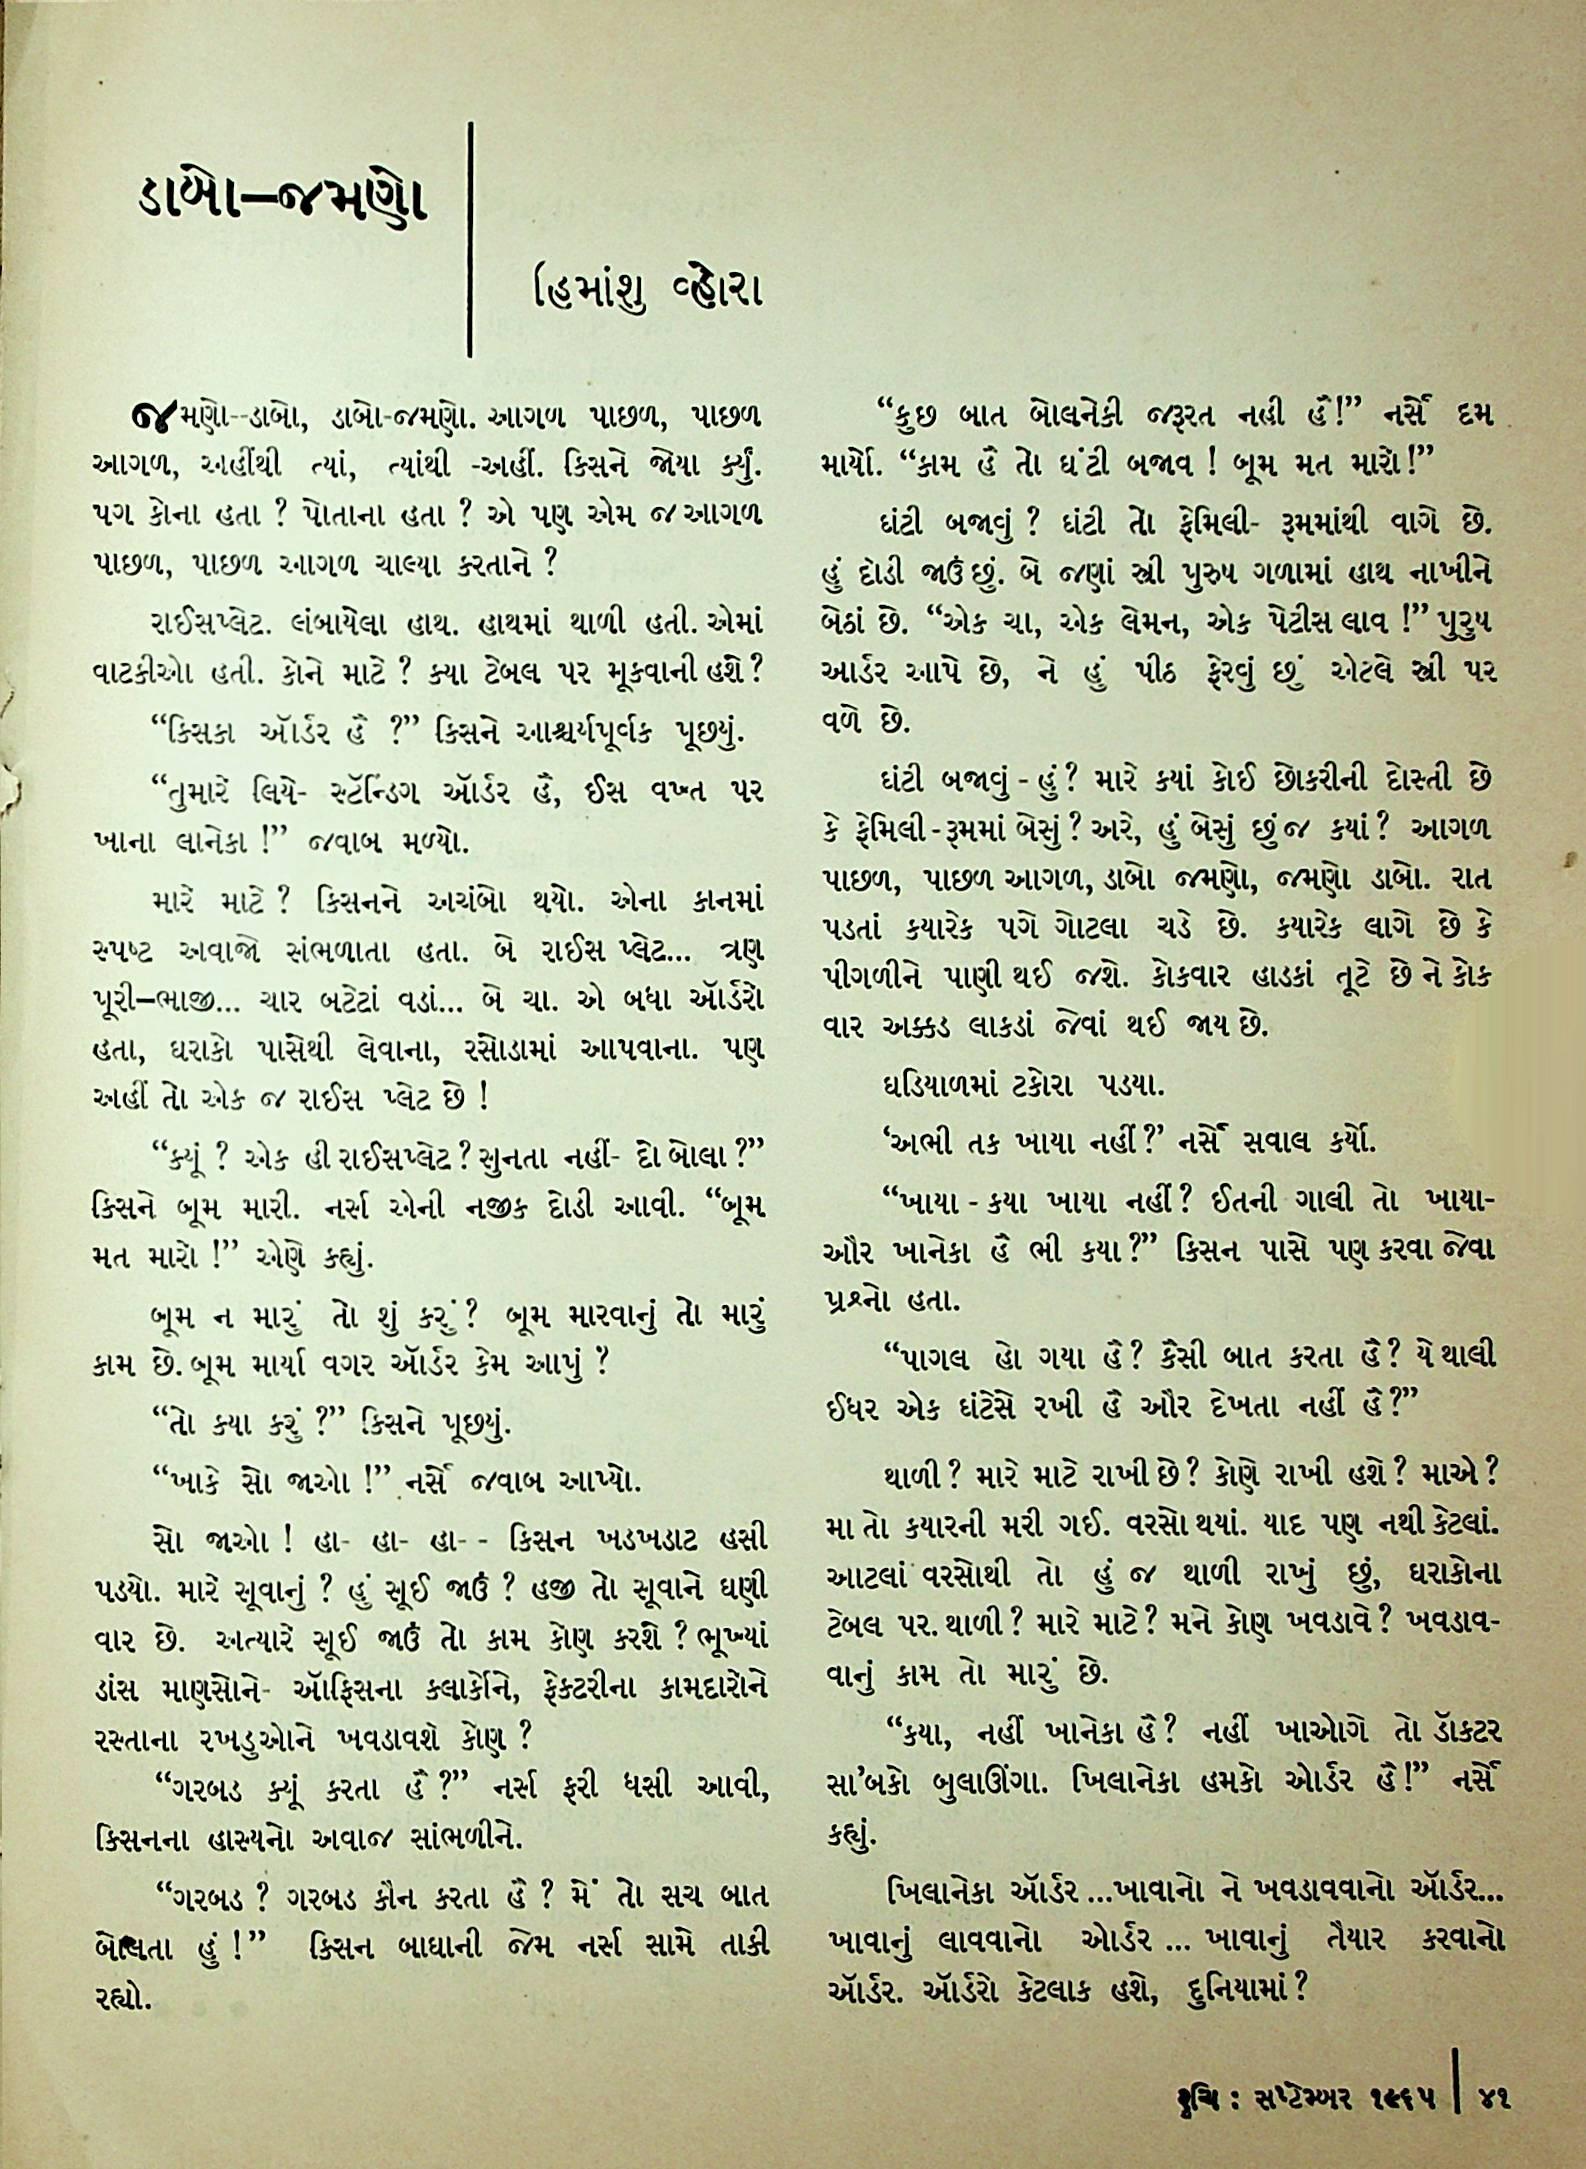 ડાબો–જમણો
હિમાંશુ વ્હોરા
જમણો--ડાબો, ડાબો-જમણો. આગળ પાછળ, પાછળ
આગળ, અહીંથી ત્યાં, ત્યાંથી -અહીં. કિસને જોયા કર્યું.
પગ કોના હતા ? પોતાના હતા ? એ પણ એમ જ આગળ
પાછળ, પાછળ આગળ ચાલ્યા કરતાને ?
રાઈસપ્લેટ. લંબાયેલા હાથ. હાથમાં થાળી હતી. એમાં
વાટકીઓ હતી. કોને માટે ? ક્યા ટેબલ પર મૂકવાની હશે ?
“કિસકા ઑર્ડર હૈ ?” કિસને આશ્ચર્યપૂર્વક પૂછયું.
“તુમારે લિયે- સ્ટૅન્ડિંગ ઑર્ડર હૈ, ઈસ વખ્ત પર
ખાના લાનેકા !” જવાબ મળ્યો.
મારે માટે ? કિસનને અચંબો થયો. એના કાનમાં
સ્પષ્ટ અવાજો સંભળાતા હતા. બે રાઈસ પ્લેટ... ત્રણ
પૂરી–ભાજી... ચાર બટેટાં વડાં... બે ચા. એ બધા ઑર્ડરો
હતા, ઘરાકો પાસેથી લેવાના, રસોડામાં આપવાના. પણ
અહીં તો એક જ રાઈસ પ્લેટ છે !
“ક્યૂં ? એક હી રાઈસપ્લેટ ? સુનતા નહીં- દો બોલા ?”
કિસને બૂમ મારી. નર્સ એની નજીક દોડી આવી. “બૂમ
મત મારો !” એણે કહ્યું.
બૂમ ન મારું તો શું કરું ? બૂમ મારવાનું તો મારું
કામ છે. બૂમ માર્યા વગર ઑર્ડર કેમ આપું ?
“તો ક્યા કરું ?” કિસને પૂછયું.
“ખાકે સો જાઓ !” નર્સે જવાબ આપ્યો.
સો જાઓ ! હા- હા- હા- - કિસન ખડખડાટ હસી
પડયો. મારે સૂવાનું ? હું સૂઈ જાઉં ? હજી તો સૂવાને ઘણી
વાર છે. અત્યારે સૂઈ જાઉં તો કામ કોણ કરશે ? ભૂખ્યાં
ડાંસ માણસોને- ઑફિસના કલાર્કોને, ફેક્ટરીના કામદારોને
રસ્તાના રખડુઓને ખવડાવશે કોણ ?
“ગરબડ ક્યૂં કરતા હૈ ?” નર્સ ફરી ધસી આવી,
કિસનના હાસ્યનો અવાજ સાંભળીને.
“ગરબડ ? ગરબડ કૌન કરતા હૈ ? મેં તો સચ બાત
બોલતા હું !” કિસન બાઘાની જેમ નર્સ સામે તાકી
રહ્યો.
“કુછ બાત બોલનેકી જરૂરત નહી હૈ !” નર્સે દમ
માર્યો. “કામ હૈ તો ઘંટી બજાવ ! બૂમ મત મારો !”
ઘંટી બજાવું ? ઘંટી તો ફેમિલી- રૂમમાંથી વાગે છે.
હું દોડી જાઉં છું. બે જણાં સ્ત્રી પુરુષ ગળામાં હાથ નાખીને
બેઠાં છે. “એક ચા, એક લેમન, એક પેટીસ લાવ !” પુરુષ
આર્ડર આપે છે, ને હું પીઠ ફેરવું છું એટલે સ્ત્રી પર
વળે છે.
ઘંટી બજાવું - હું ? મારે કયાં કોઈ છોકરીની દોસ્તી છે
કે ફેમિલી - રૂમમાં બેસું ? અરે, હું બેસું છું જ કયાં ? આગળ
પાછળ, પાછળ આગળ, ડાબો જમણો, જમણો ડાબો. રાત
પડતાં કયારેક પગે ગોટલા ચડે છે. કયારેક લાગે છે કે
પીગળીને પાણી થઈ જશે. કોકવાર હાડકાં તૂટે છે ને કોક
વાર અક્કડ લાકડાં જેવાં થઈ જાય છે.
ઘડિયાળમાં ટકોરા પડયા.
‘અભી તક ખાયા નહીં ?’ નર્સે સવાલ કર્યો.
“ખાયા - કયા ખાયા નહીં ? ઈતની ગાલી તો ખાયા-
ઔર ખાનેકા હૈ ભી કયા ?” કિસન પાસે પણ કરવા જેવા
પ્રશ્નો હતા.
“પાગલ હો ગયા હૈ ? કૈસી બાત કરતા હૈ ? યે થાલી
ઈધર એક ઘંટેસે રખી હૈ ઔર દેખતા નહીં હૈ ?”
થાળી ? મારે માટે રાખી છે ? કોણે રાખી હશે ? માએ ?
મા તો કયારની મરી ગઈ. વરસો થયાં. યાદ પણ નથી કેટલાં.
આટલાં વરસોથી તો હું જ થાળી રાખું છું, ઘરાકોના
ટેબલ પર. થાળી ? મારે માટે ? મને કોણ ખવડાવે ? ખવડાવ-
વાનું કામ તો મારું છે.
“કયા, નહીં ખાનેકા હૈ ? નહીં ખાઓગે તો ડૉકટર
સા’બકો બુલાઊંગા. ખિલાનેકા હમકો ઓર્ડર હૈ !” નર્સે
કહ્યું.
ખિલાનેકા ઑર્ડર ...ખાવાનો ને ખવડાવવાનો ઑર્ડર...
ખાવાનું લાવવાનો ઓર્ડર ... ખાવાનું તૈયાર કરવાનો
ઑર્ડર. ઑર્ડરો કેટલાક હશે, દુનિયામાં ?
રુચિ : સપ્ટેમ્બર ૧૯૬૫ | ૪૧